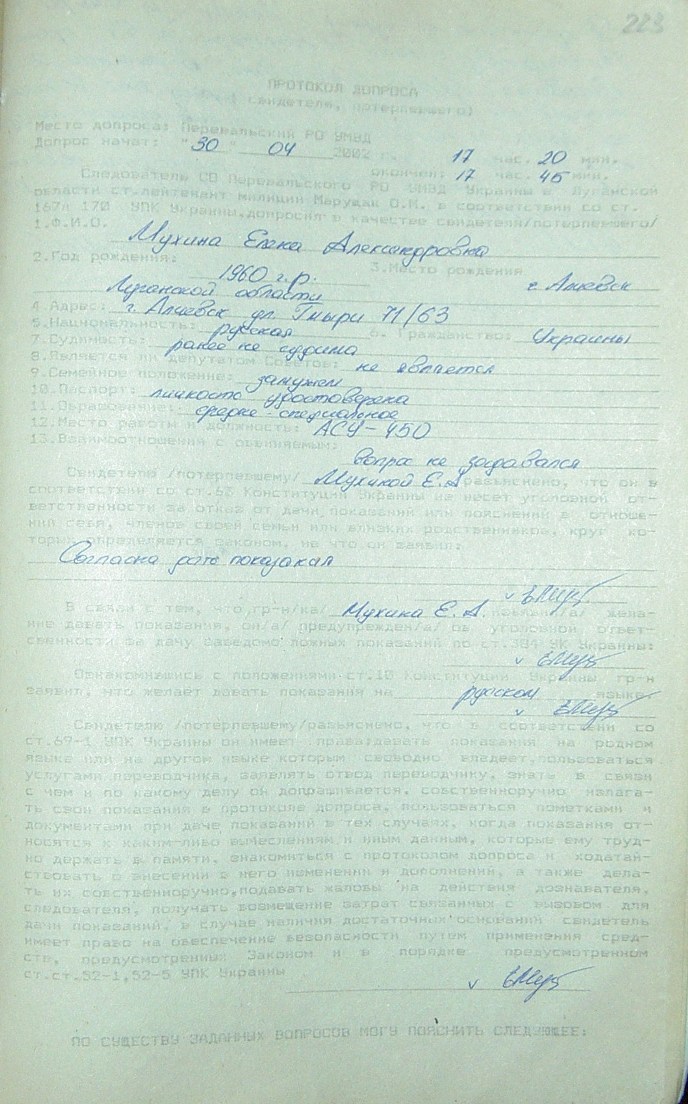 223
ПРОТОКОЛ ДОПРОСА
( свидетеля, потерпевшего)
Место допроса: Перевальский РО УМВД
Допрос начат: "30" 04 2002 г. 17 час. 20 мин.
окончен: 17 час. 45 мин.
Следователь СО Перевальского РО УМВД Украины в Луганской
области ст.лейтенант милиции Марущак О.М. в соответствии со ст.
167и 170 УПК Украины,допросил в качестве свидетеля/потерпевшего/
1.Ф.И.О.
Мухина Елена Александровна
2.Год рождения: 3.Место рождения
1960 г.р. г. Алчевск
Луганской области
4.Адрес: г. Алчевск ул Гмыри 71/63
5.Национальность: русская 6. Гражданство: Украины
7.Судимость: ранее не судима
8.Является ли депутатом Советов: не является
9.Семейное положение: замужем
10.Паспорт: личность удостоверена
11.Образование: средне-специальное
12.Место работы и должность: АСУ-450
13.Взаимоотношения с обвиняемым:
вопрос не задавался
Свидетелю /потерпевшему/ Мухиной Е.А разъяснено, что он в
соответствии со ст.63 Конституции Украины не несет уголовной от-
ветственности за отказ от дачи показаний или пояснений в отноше-
нии себя, членов своей семьи или близких родственников, круг ко-
торых определяется законом, на что он заявил:
Согласна дать показания
v
В связи с тем, что гр-н/ка/ Мухина Е.А. изъявил/а/ жела-
ние давать показания, он/а/ предупрежден/а/ об уголовной ответ-
свенности за дачу заведомо ложных показаний по ст.384 УК Украины:
v
Ознакомившись с положениями ст.10 Конституции Украины гр-н
заявил, что желает давать показания на русском языке
v
Свидетелю /потерпевшему/разъяснено, что в соответствии со
ст.69-1 УПК Украины он имеет право:давать показания на родном
языке или на другом языке которым свободно владеет,пользоваться
услугами переводчика, заявлять отвод переводчику, знать в связи
с чем и по какому делу он допрашивается, собственноручно излага-
ть свои показания в протоколе допроса, пользоваться пометками и
документами при даче показаний в тех случаях, когда показания от-
носятся к каким-либо вычислениям и иным данным, которые ему труд-
но держать в памяти, знакомиться с протоколом допроса и ходатай-
ствовать о внесении в него изменений и дополнений, а также дела-
ть их собственноручно,подавать жалобы на действия дознавателя,
следователя, получать возмещение затрат связанных с вызовом для
дачи показаний. В случае наличии достаточных оснований свидетель
имеет право на обеспечение безопасности путем применения сред-
ств, предусмотренных Законом и в порядке предусмотренном
ст.ст.52-1,52-5 УПК Украины
v
ПО СУЩЕСТВУ ЗАДАННЫХ ВОПРОСОВ МОГУ ПОЯСНИТЬ СЛЕДУЮЩЕЕ: